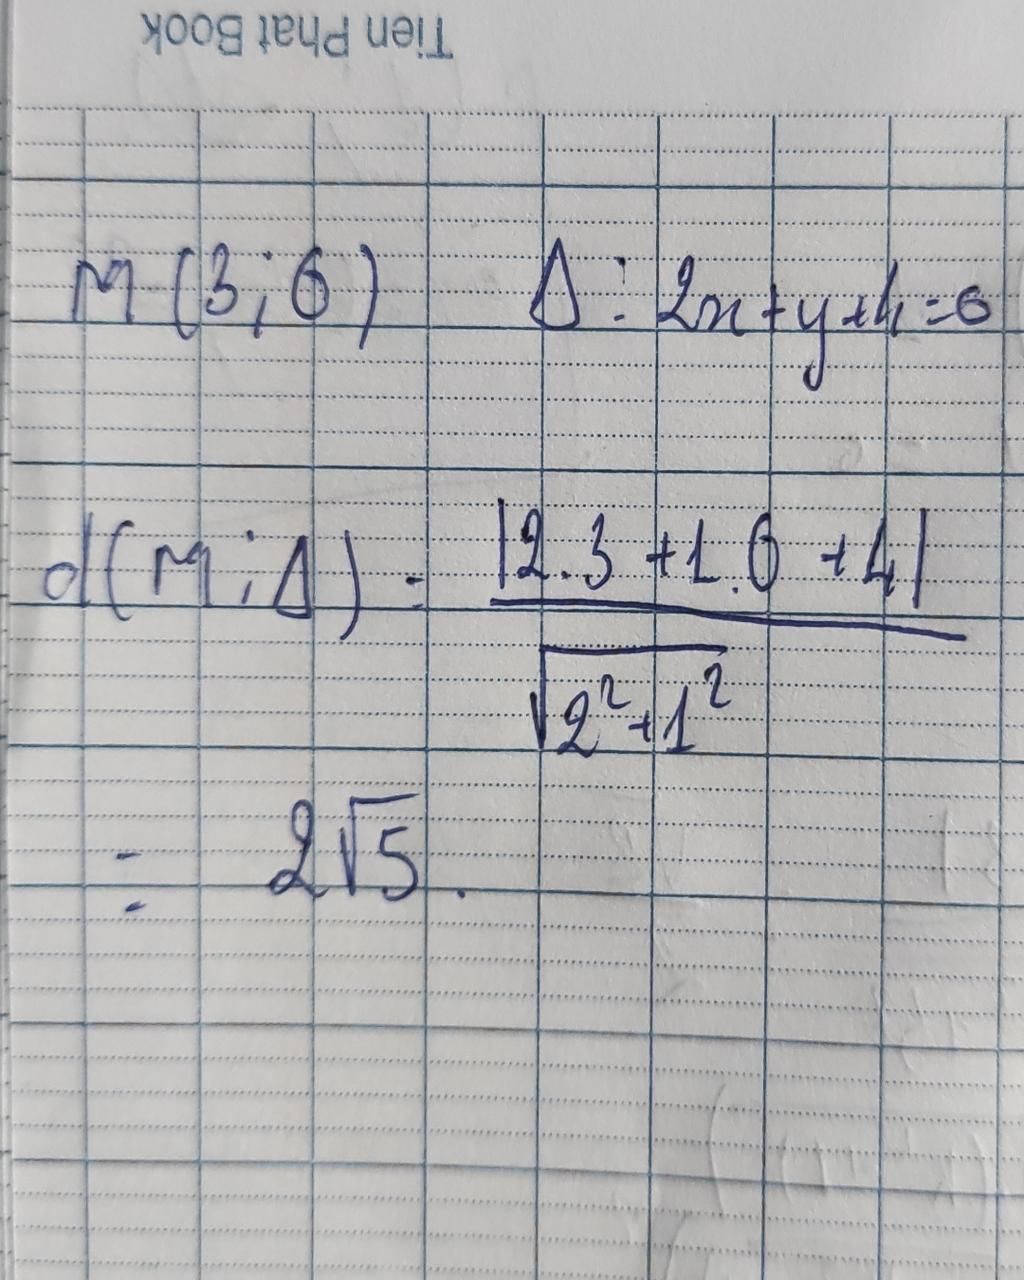 Tien Phat Book
M(3;0) Δ: 2x+y+4=0
d(M;Δ) = |2.3+1.0+4| / √(2²+1²)
= 2√5.